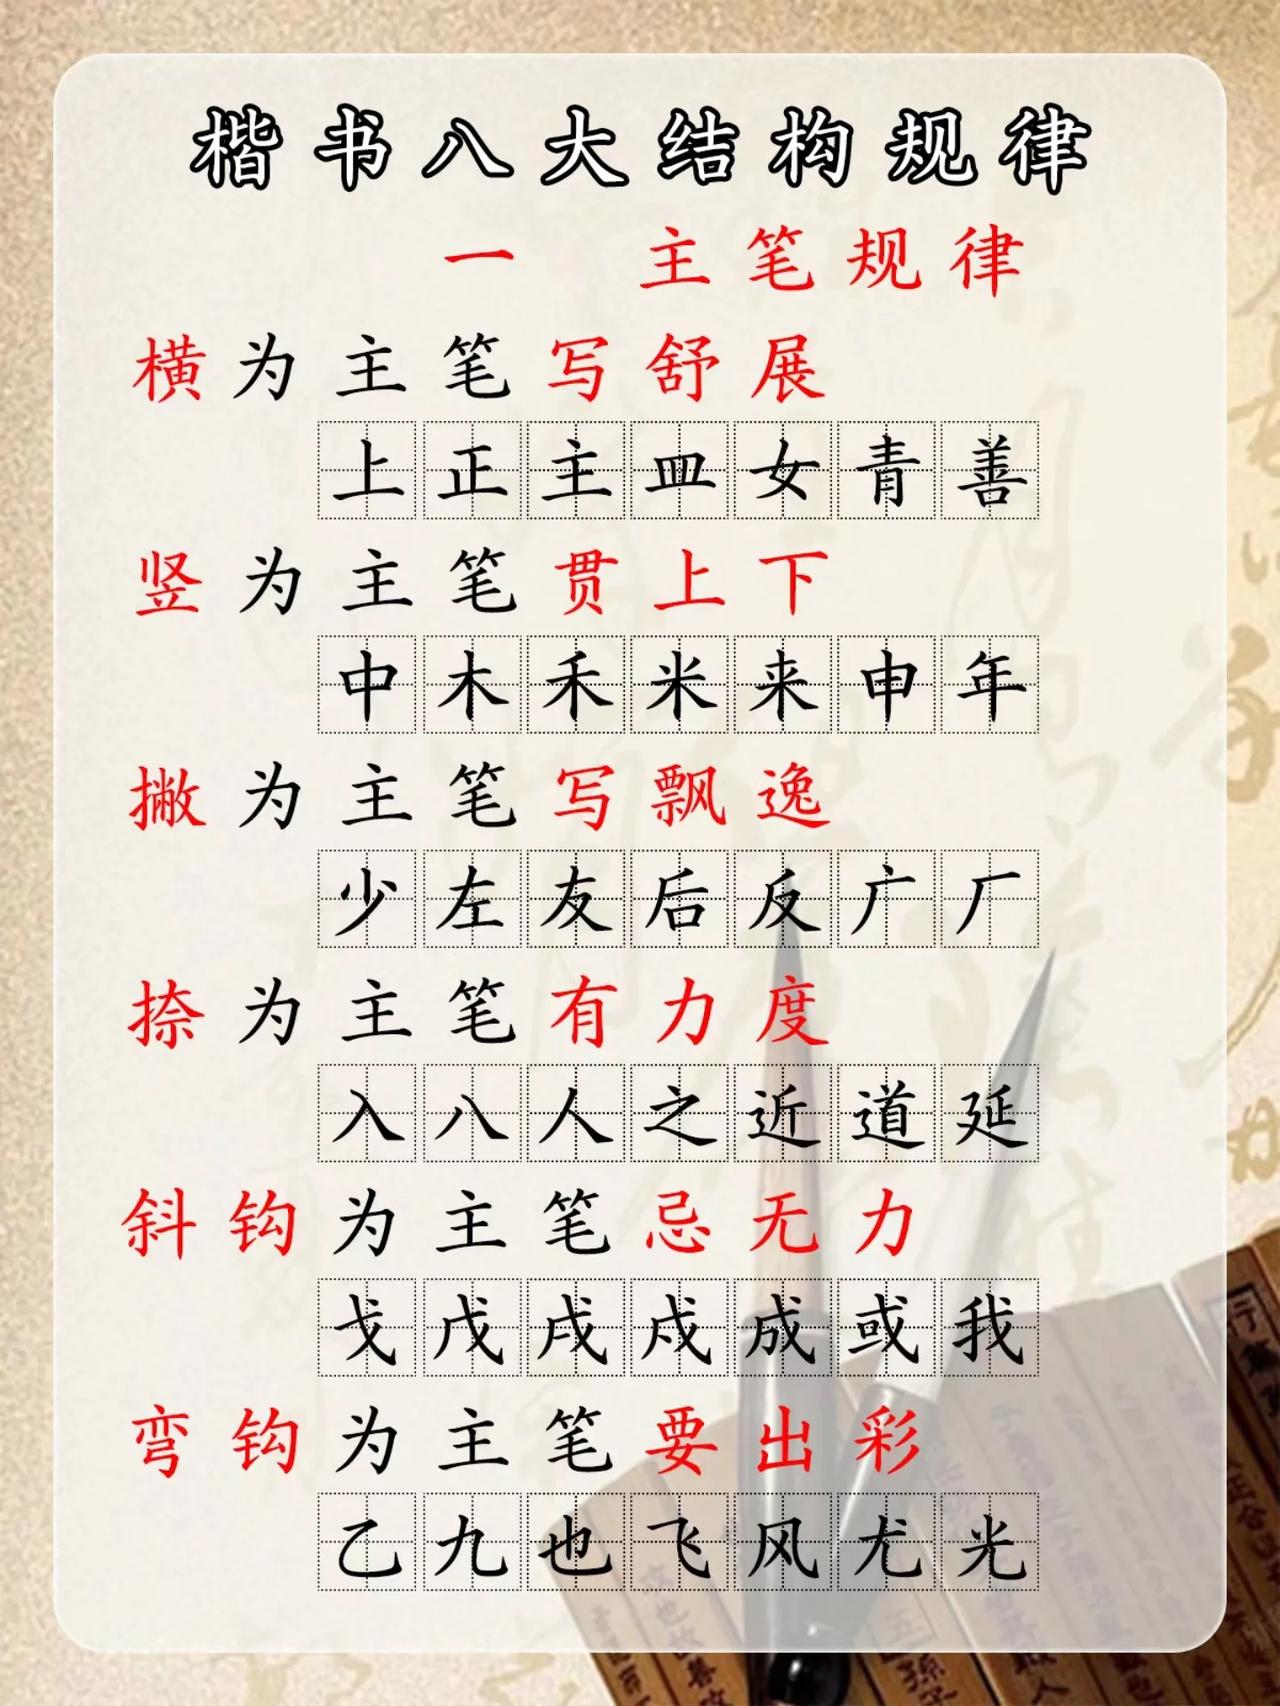 楷书八大结构规律
一 主笔规律
横为主笔写舒展
上正主皿女青善
竖为主笔贯上下
中木禾米来申年
撇为主笔写飘逸
少左友后反广厂
捺为主笔有力度
入八人之近道延
斜钩为主笔忌无力
戈戊戌戍成或我
弯钩为主笔要出彩
乙九也飞风尤光